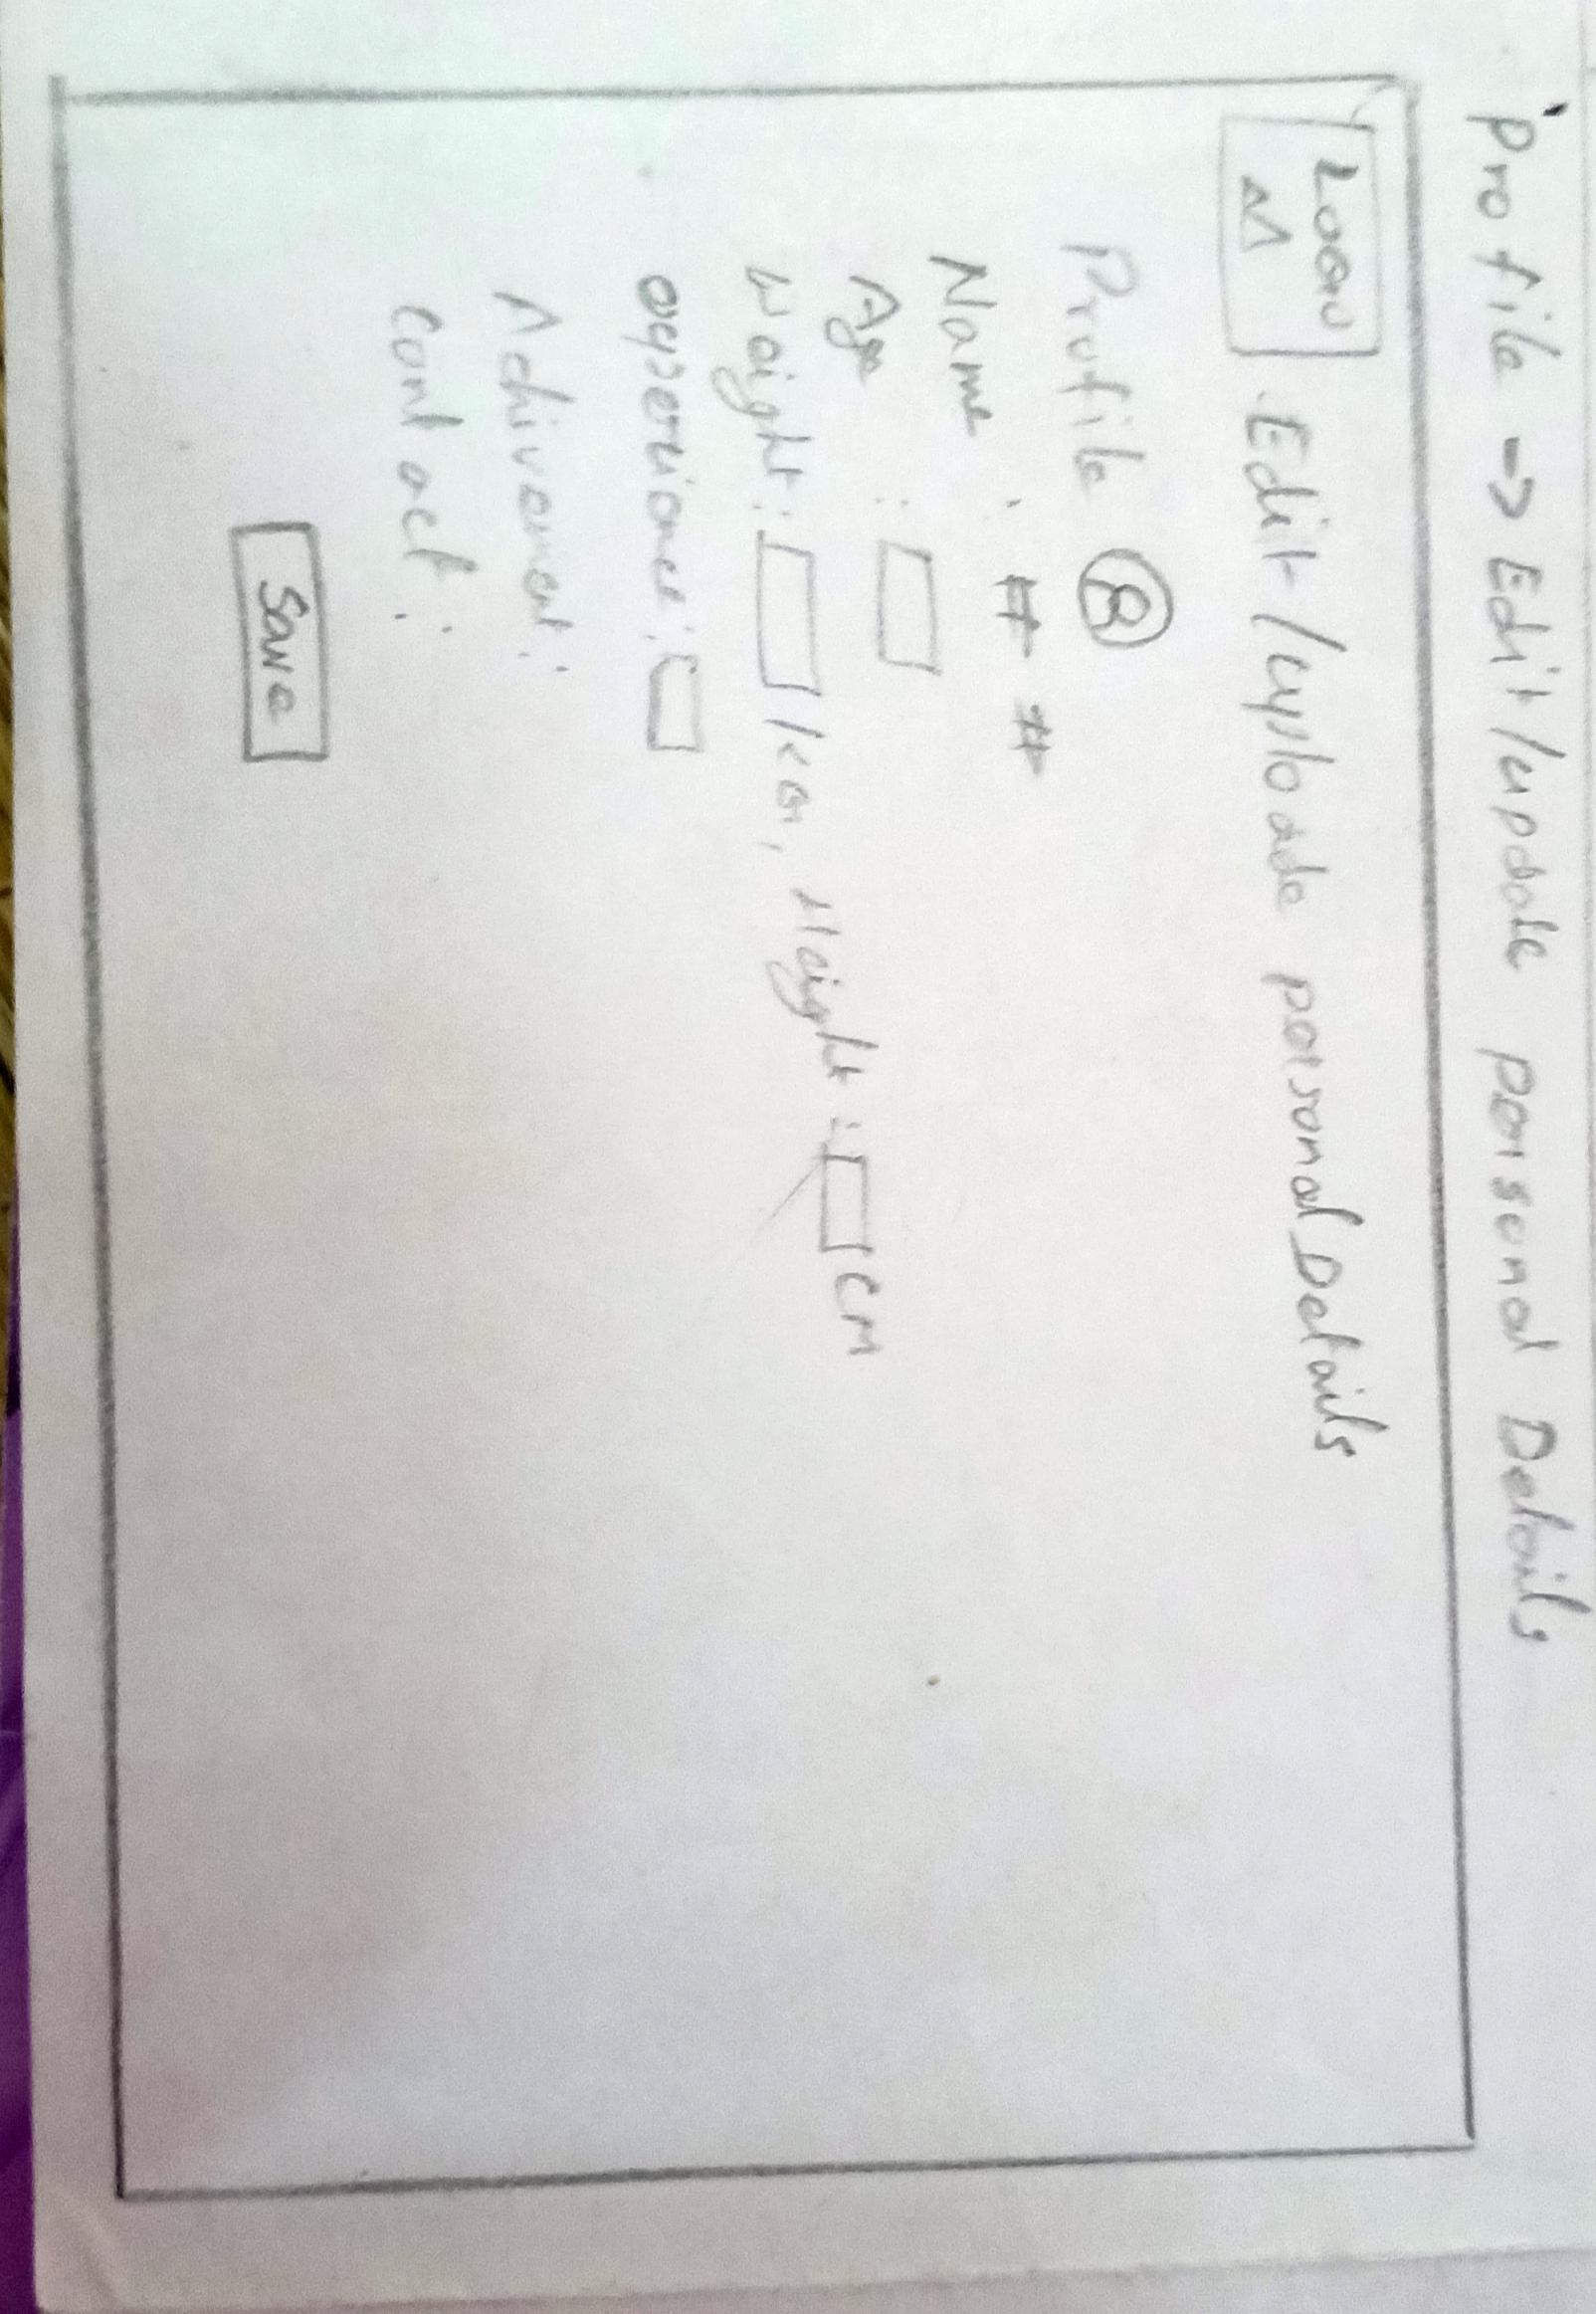 Profile → Edit/update personal Details
LOGO
Edit/uploade personal Details
Profile
Name : # #
Age :
Weight : KG, Height : CM
experience :
Achivement :
Contact :
Save